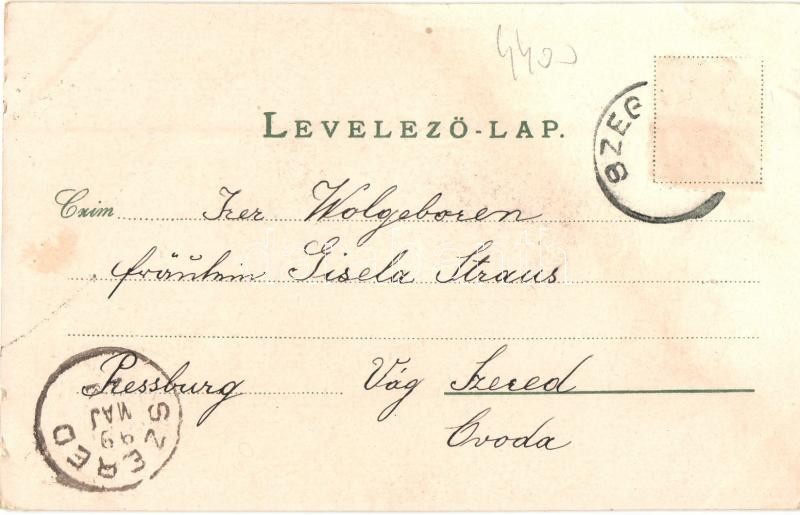 4400
LEVELEZŐ-LAP.
SZEG
Czim Izer Wolgeboren
fräulein Gisela Straus
Pressburg Vág Szered
Ovoda
SZERED
99
MAJ